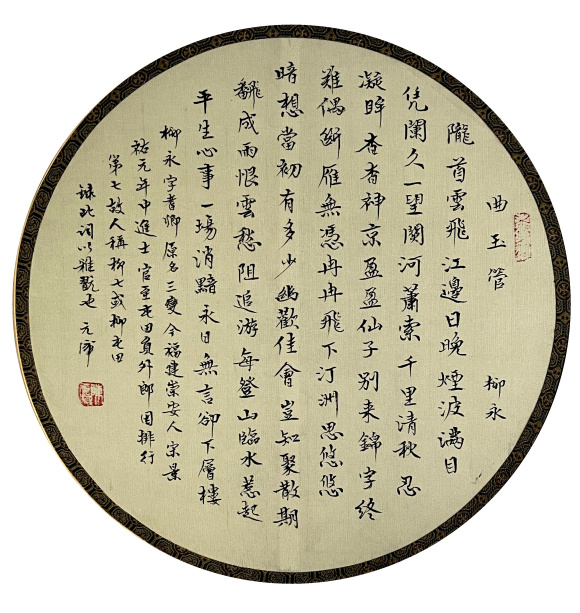 曲玉管 柳永
隴首雲飛江邊日晚煙波滿目
凭闌久一望關河蕭索千里清秋忍
凝眸杳杳神京盈盈仙子別来錦字終
難偶斷雁無憑冉冉飛下汀洲思悠悠
暗想當初有多少幽歡佳會豈知聚散期
飜成雨恨雲愁阻追游每登山臨水惹起
平生心事一場消黯永日無言卻下層樓
柳永字耆卿原名三變今福建崇安人宋景
祐元年中進士官至屯田員外郎因排行
第七故人稱柳七或柳屯田
録此詞以雅翫也 元